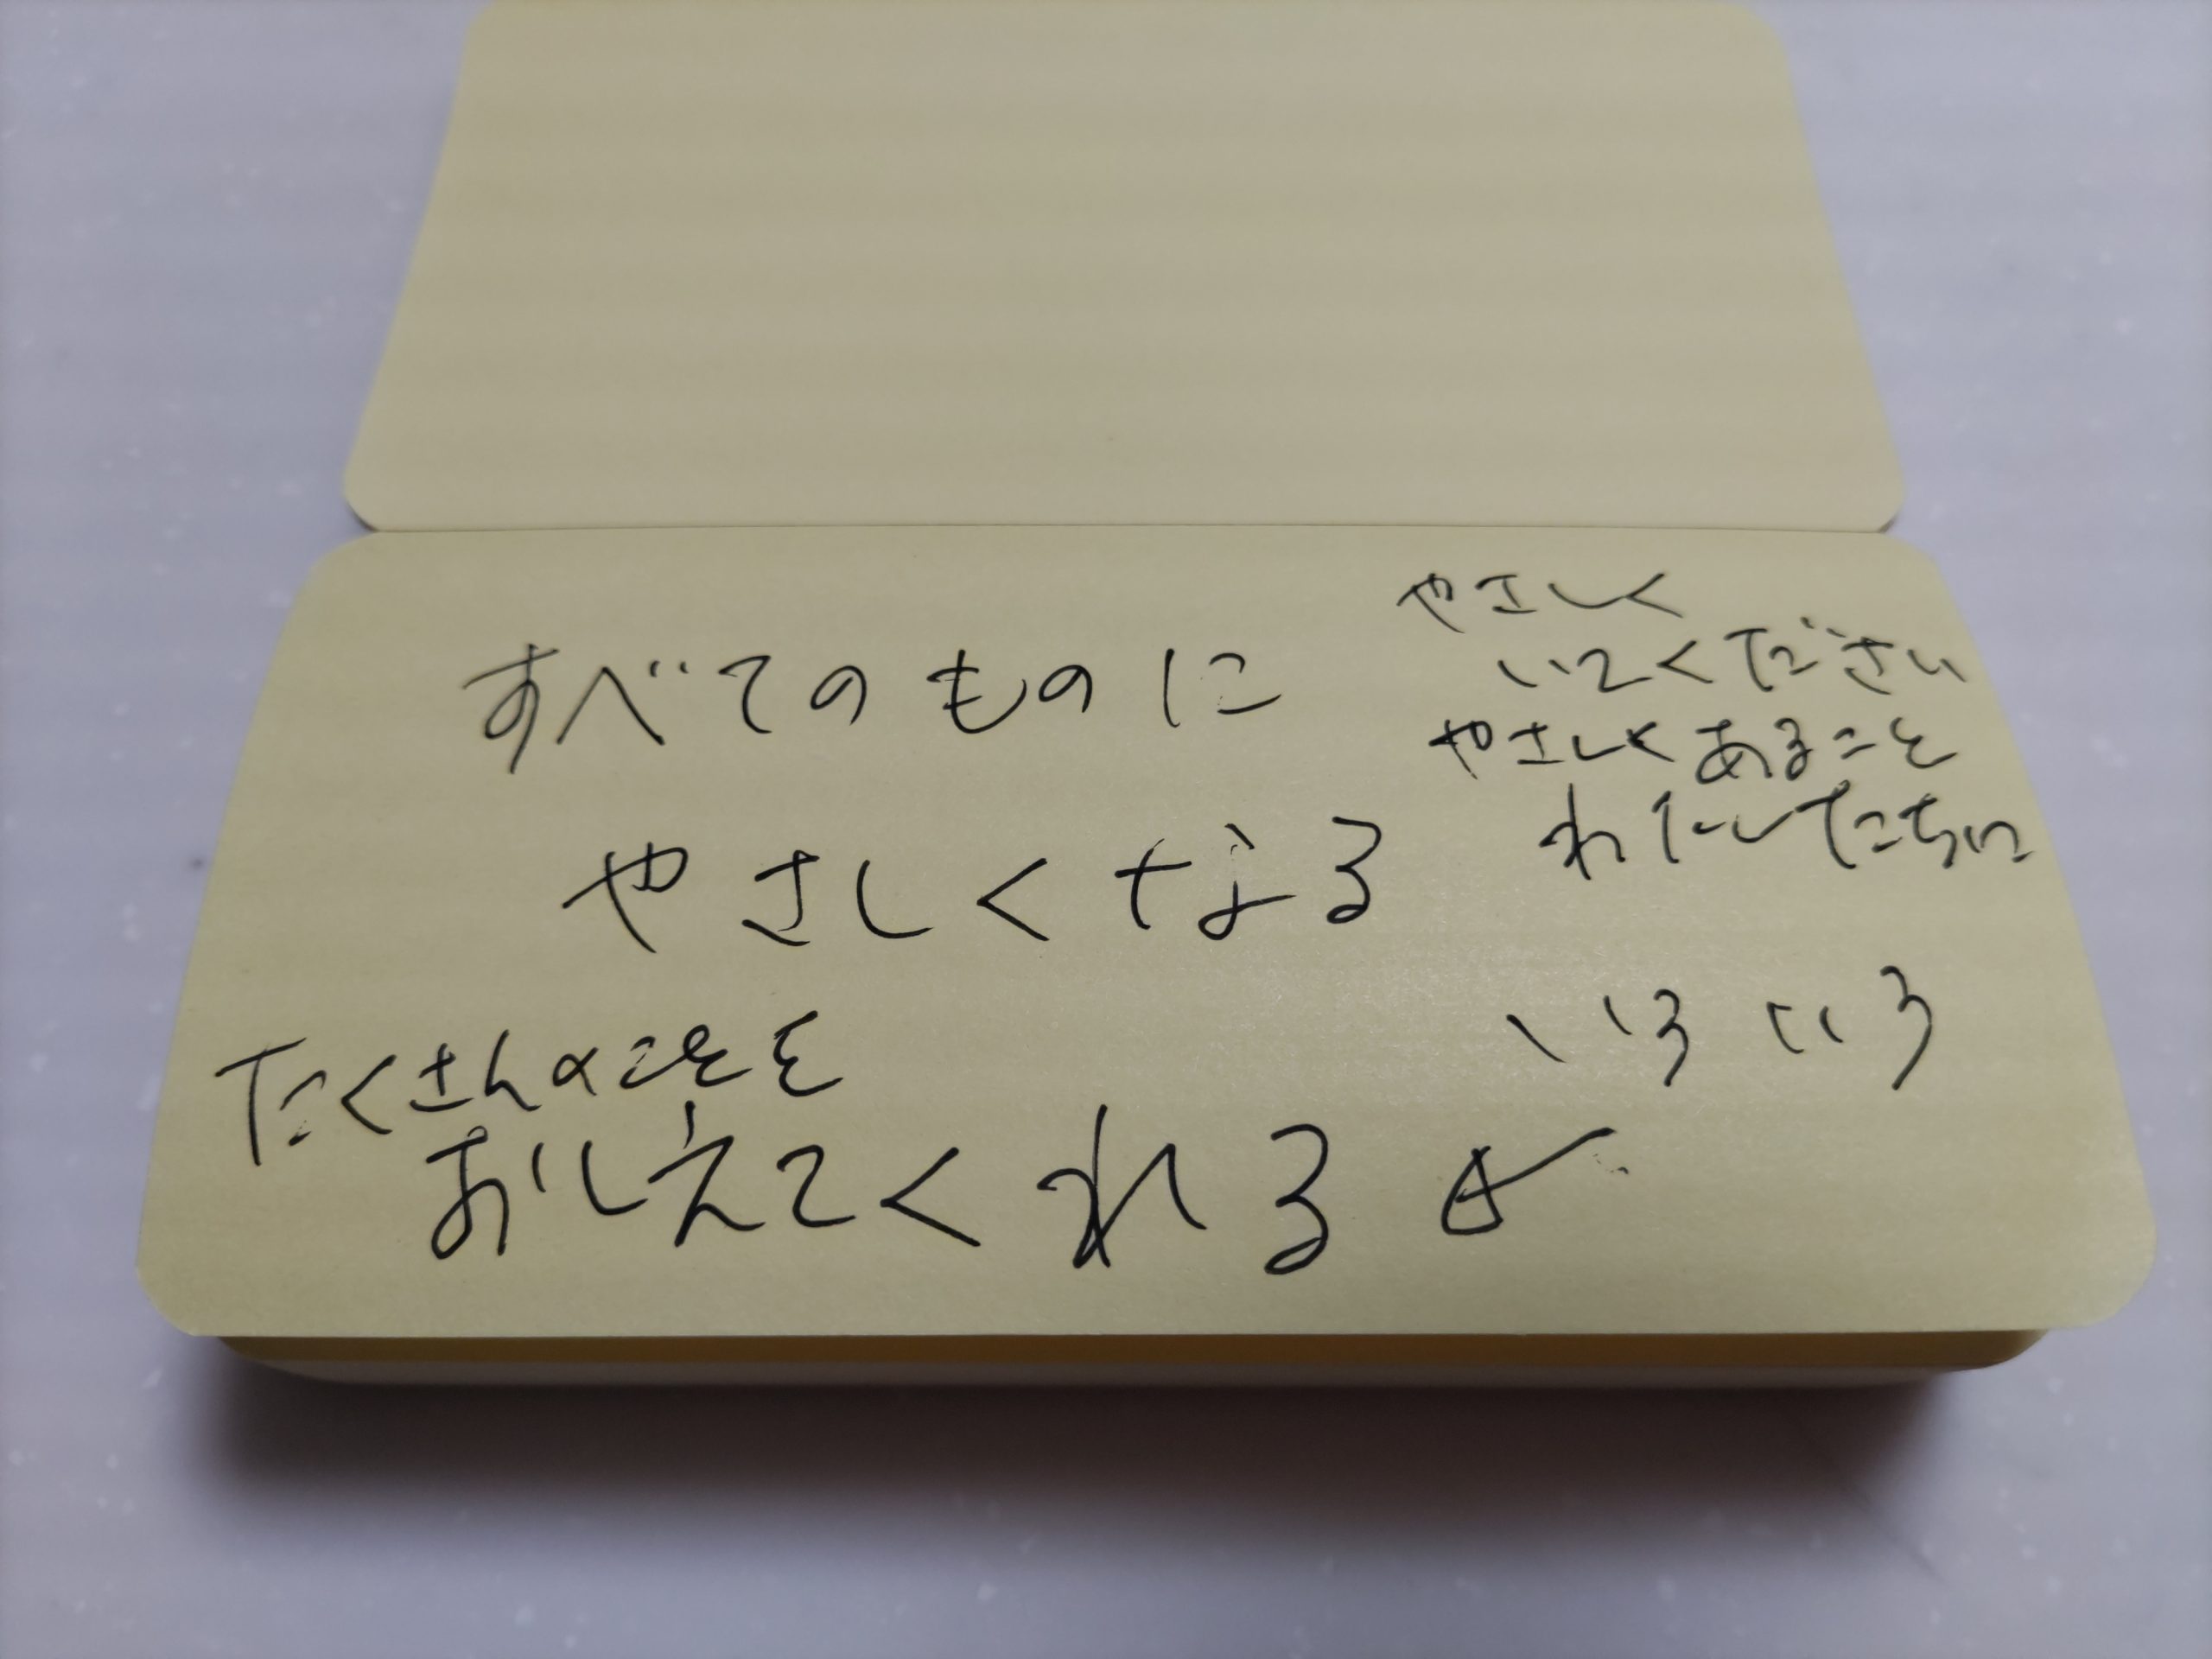 すべてのものに
やさしくなる
やさしく
いてください
やさしくあること
わたしたちに
いろいろ
たくさんのことを
おしえてくれる